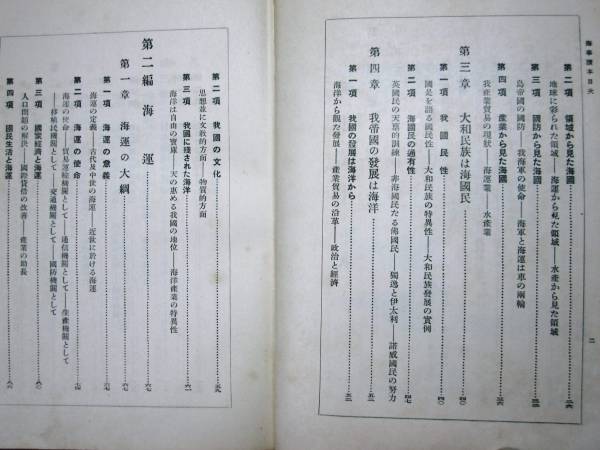 海事讀本目次
二
第二項 領域から見た海國……二六
地球に彩られた領域――海運から見た領域――水産から見た領域
第三項 國防から見た海國……三二
島帝國の國防――我海軍の使命――海軍と海運は車の兩輪
第四項 産業から見た海國……三六
我産業貿易の現狀――海運業――水産業
第三章 大和民族は海國民……四〇
第一項 我國民性……四〇
國是を語る國民性――大和民族の特異性――大和民族發展の實例
第二項 海國民の通有性……四七
英國民の天禀的訓練――非海國民たる佛國民――獨逸と伊太利――諾威國民の努力
第四章 我帝國の發展は海洋……五二
第一項 我國の發展は海洋から……五二
海洋から觀た發展――産業貿易の沿革――政治と經濟
第二項 我國の文化……五九
思想並に文敎的方面――物質的方面
第三項 我國に殘された海洋……六一
海洋は自由の寶庫――天の惠める我國の地位――海洋産業の特異性
第二編 海運……六七
第一章 海運の大綱……六七
第一項 海運の意義……六七
海運の定義――古代及中世の海運――近世に於ける海運
第二項 海運の使命……七四
海運の使命――貿易運輸機關として――通信機關として――生産機關として
――移植民機關として――交通機關として――國防機關として
第三項 國家經濟と海運……八〇
人口問題の解決――國際貸借の改善――産業の助長
第四項 國民生活と海運……八六